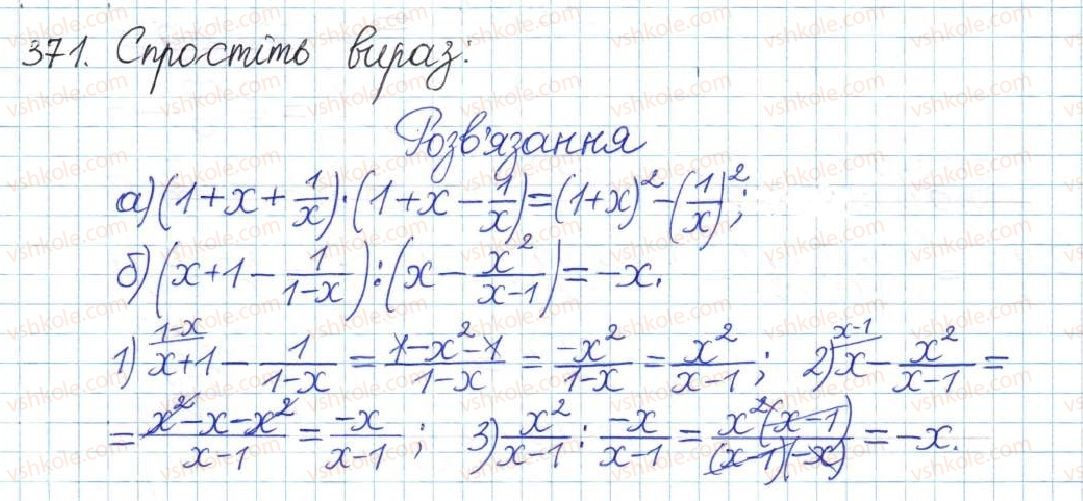 371. Спростіть вираз:
Розв'язання
а) (1+x+1/x)·(1+x−1/x)=(1+x)²−(1/x)²;
б) (x+1−1/(1−x)):(x−x²/(x−1))=−x.
1) x+1 (1−x) − 1/(1−x) = (1−x²−1)/(1−x) = −x²/(1−x) = x²/(x−1); 2) x (x−1) − x²/(x−1) =
= (x²−x−x²)/(x−1) = −x/(x−1); 3) x²/(x−1) : −x/(x−1) = x²(x−1)/((x−1)(−x)) = −x.